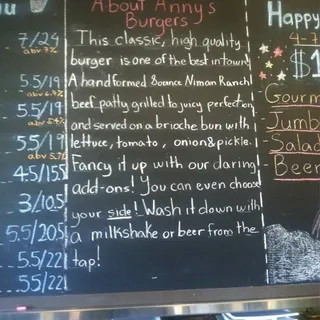 u
7/29
abv 7%
5.5/19
5.5/19
5.5/19
abv 5.7%
4.5/155
3/105
5.5/205
5.5/22
5.5/22
About Anny's
Burgers
This classic, high quality
burger is one of the best in town!
A hand formed 8ounce Niman Ranch
beef patty grilled to juicy perfection
and served on a brioche bun with
lettuce, tomato, onion & pickle.
Fancy it up with our daring
add-ons! You can even choose
your side! Wash it down with
a milkshake or beer from the
tap!
Happy
4-7
$1
Gourm
Jumb
Salad
Beer